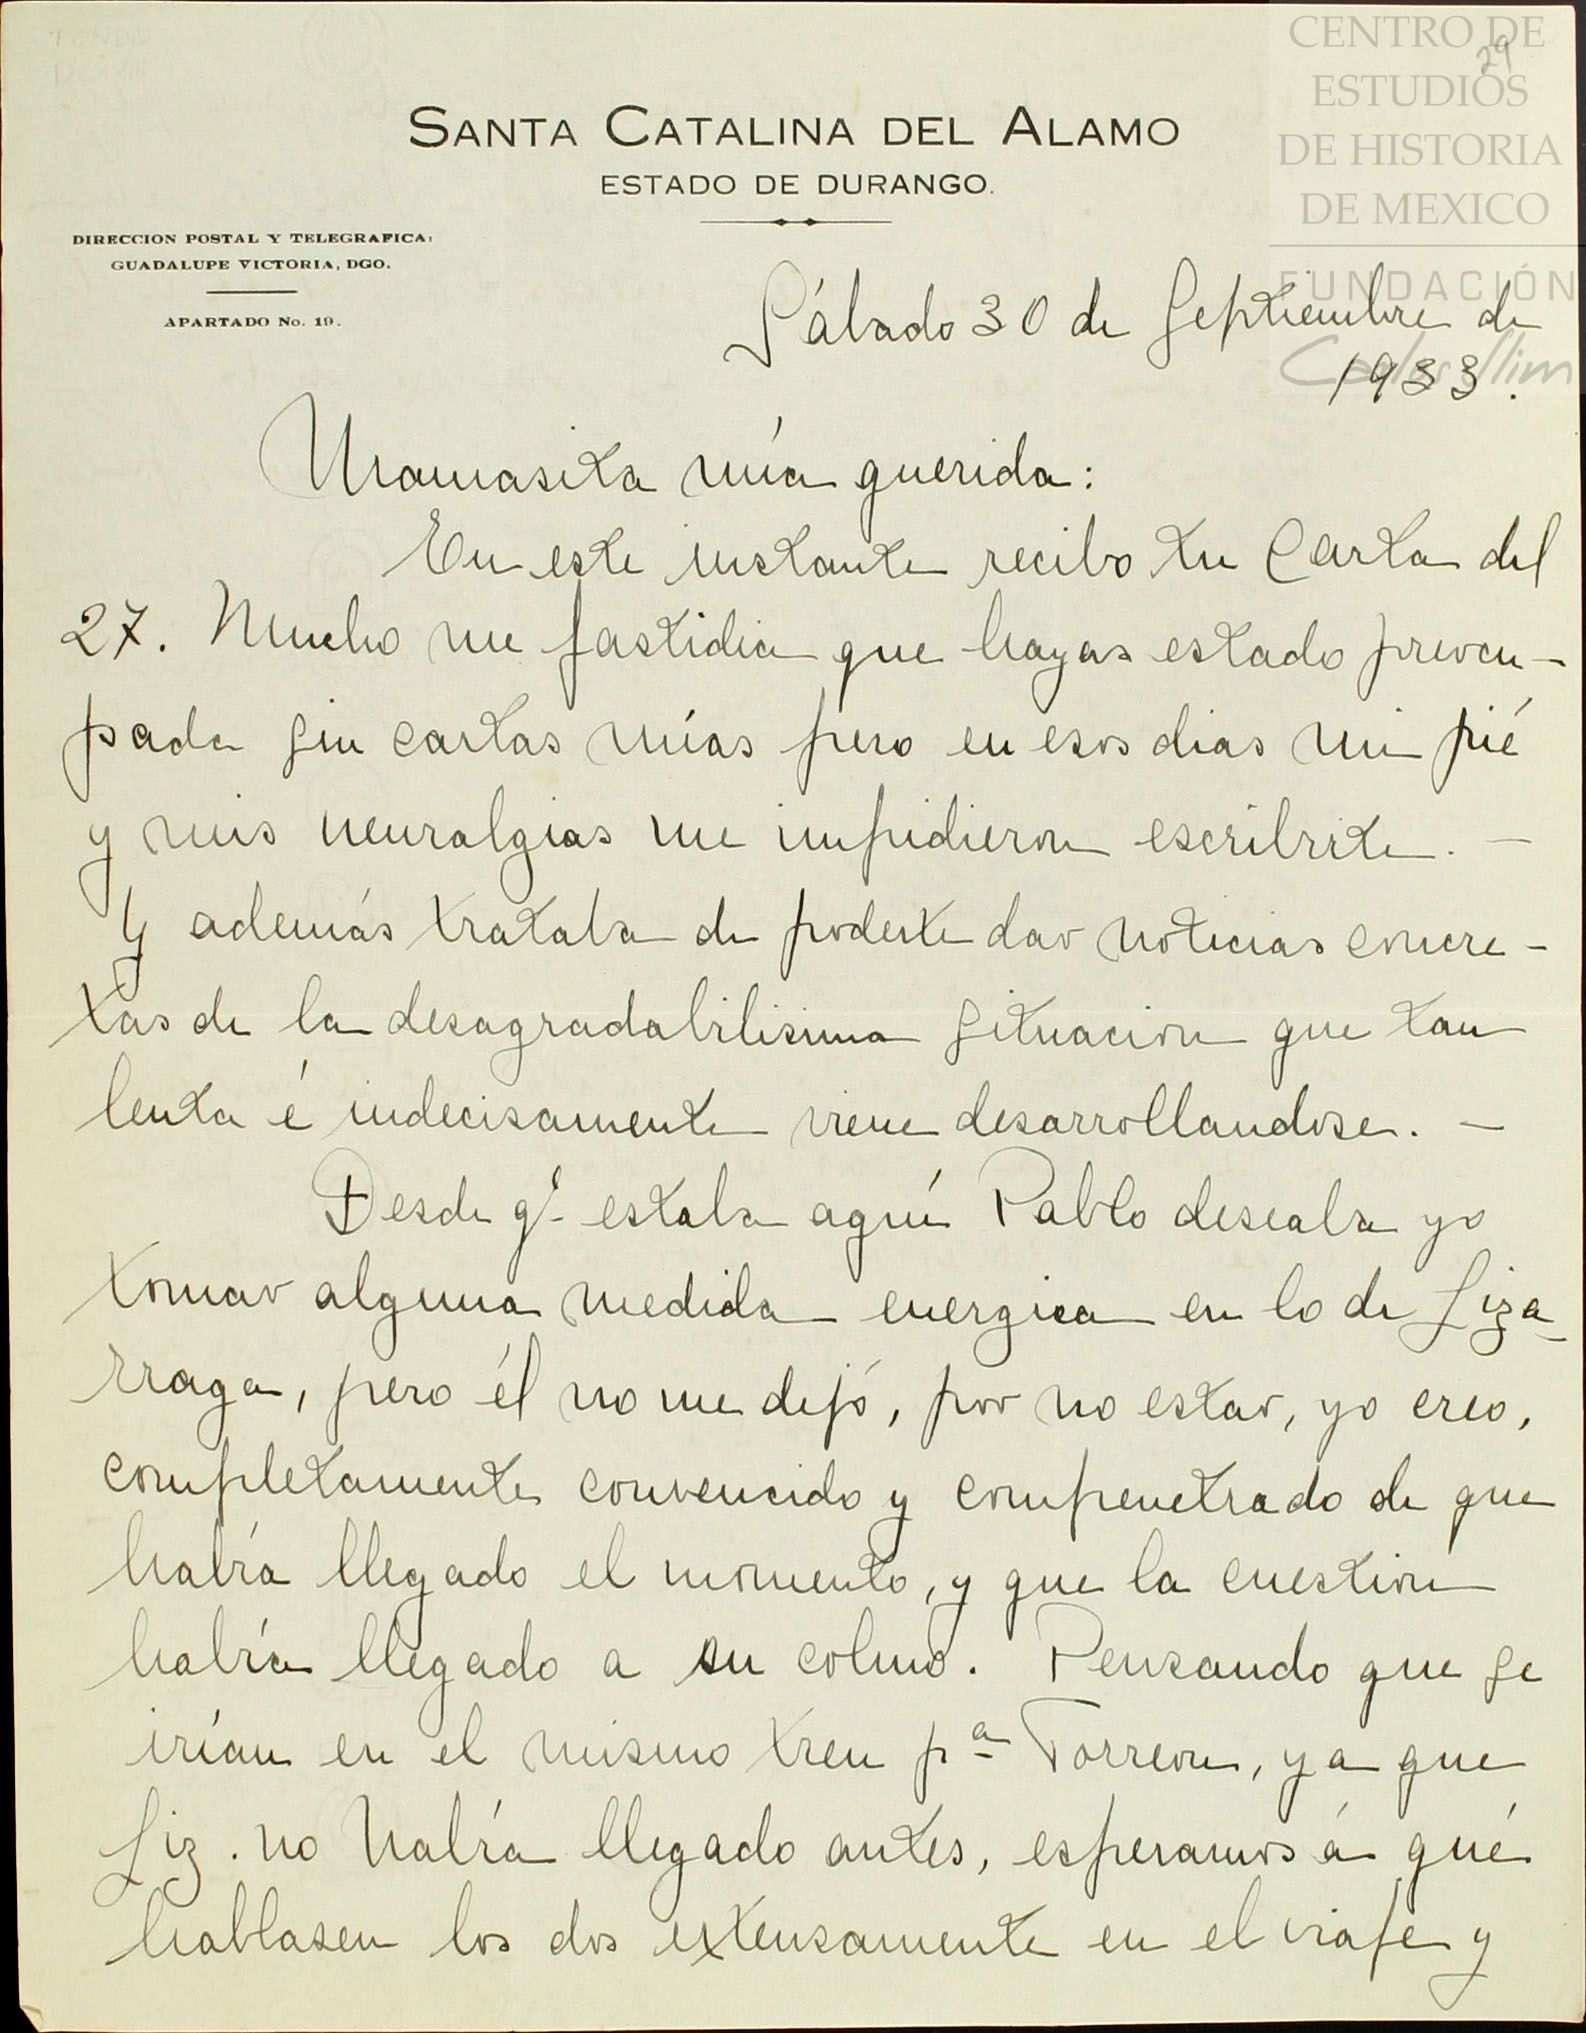 CENTRO DE
ESTUDIOS
DE HISTORIA
DE MEXICO
FUNDACIÓN
Carlos Slim
29
FONDO
DCXXIII
SANTA CATALINA DEL ALAMO
ESTADO DE DURANGO.
DIRECCION POSTAL Y TELEGRAFICA:
GUADALUPE VICTORIA, DGO.
APARTADO No. 19.
Sábado 30 de Septiembre de
1933.
Mamasita mía querida:
En este instante recibo tu carta del
27. Mucho me fastidia que hayas estado preocu-
pada sin cartas mías pero en esos dias mi pié
y mis neuralgias me impidieron escribirte. —
Y además trataba de poderte dar noticias concre-
tas de la desagradabilisima situacion que tan
lenta é indecisamente viene desarrollandose. —
Desde qe. estaba aquí Pablo deseaba yo
tomar alguna medida energica en lo de Liza-
rraga, pero él no me dejó, por no estar, yo creo,
completamente convencido y compenetrado de que
había llegado el momento, y que la cuestion
había llegado a su colmo. Pensando que se
irían en el mismo tren pa Torreon, ya que
Liz. no había llegado antes, esperamos á qué
hablasen los dos extensamente en el viaje y